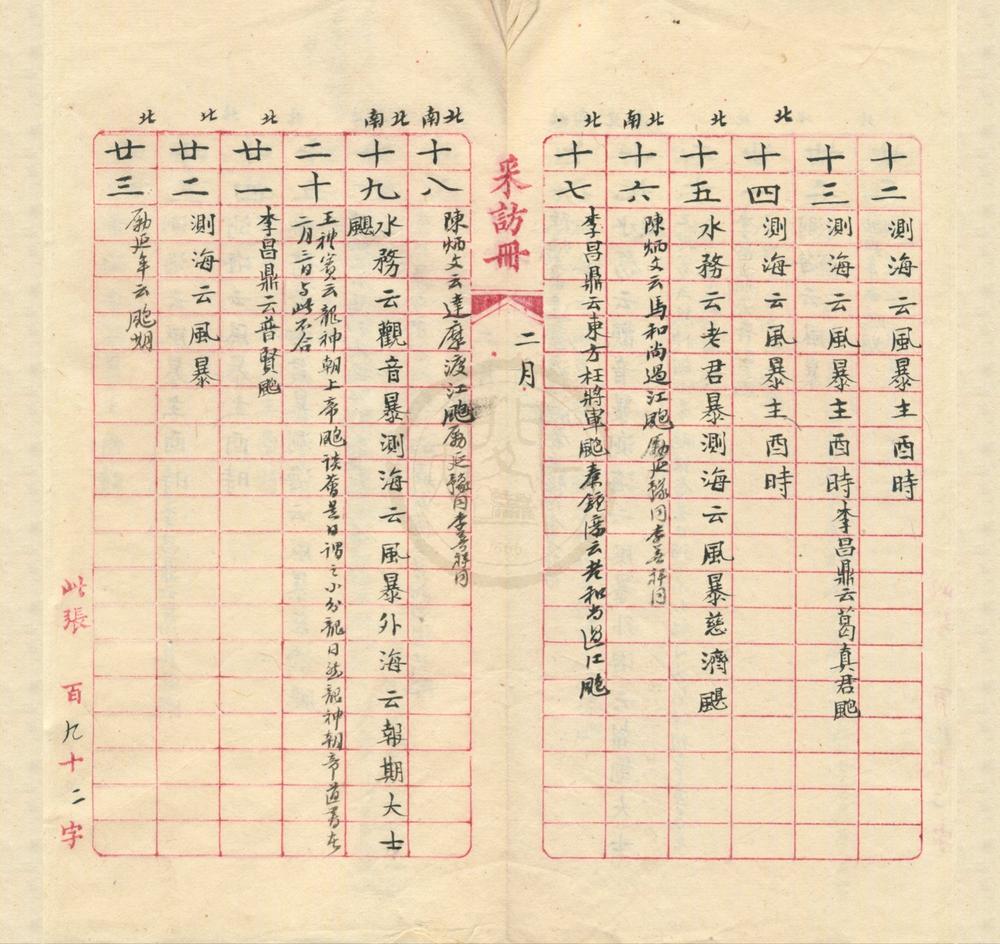 十二測海云風暴主酉時
十三測海云風暴主酉時李昌鼎云葛真君颮
北
十四測海云風暴主酉時
北
十五水務云老君暴測海云風暴慈濟颶
北
南
十六陳炳文云馬和尚過江颮勵延豫同李善祥同
北
十七李昌鼎云東方枉將軍颮秦錘儒云老和尚過江颮
采訪冊
二月
北
南
十八陳炳文云達摩渡江颮勵延豫同李善祥同
北
南
十九水務云觀音暴測海云風暴外海云報期大士
颶
二十王禮賓云龍神朝上帝颮談薈是日謂之小分龍日然龍神朝帝道書在
二月三日与此不合
北
廿一李昌鼎云普賢颮
北
廿二測海云風暴
北
廿三勵延年云颮期
此張 百九十二字